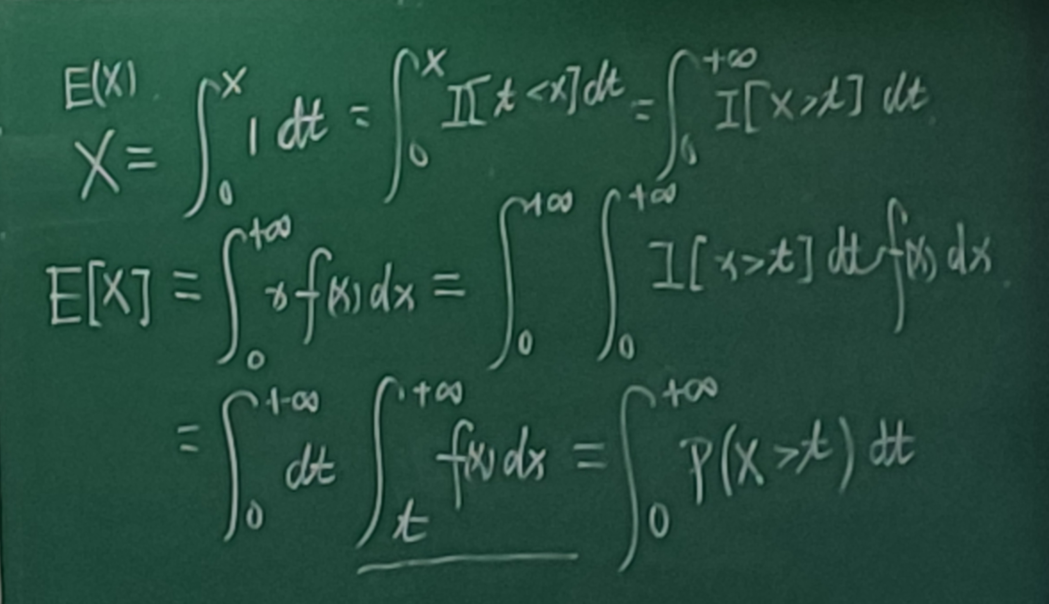 E(X)
X = ∫₀^X 1 dt = ∫₀^X I[t<X]dt = ∫₀^{+∞} I[X>t] dt
E[X] = ∫₀^{+∞} x f(x) dx = ∫₀^{+∞} ∫₀^{+∞} I[x>t] dt f(x) dx
= ∫₀^{+∞} dt ∫_t^{+∞} f(x) dx = ∫₀^{+∞} P(X>t) dt